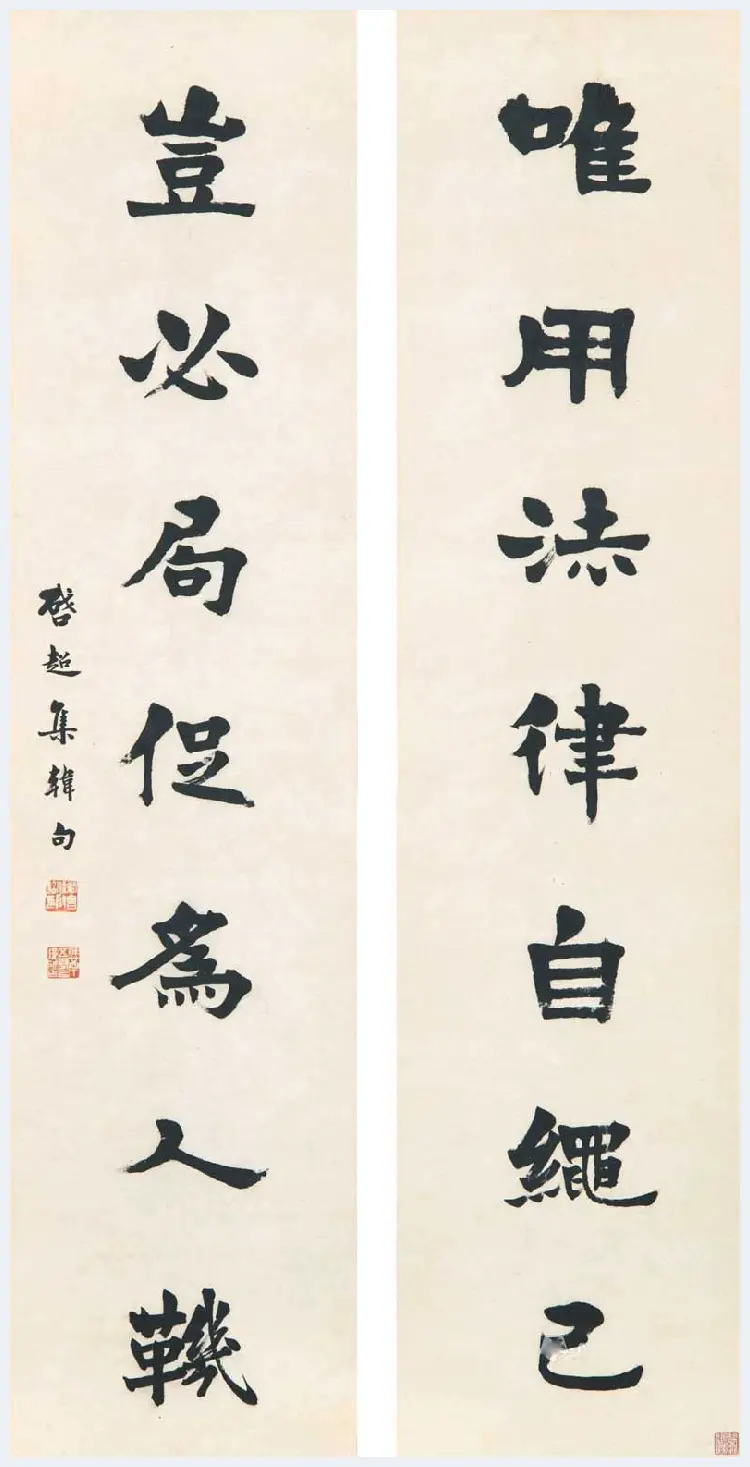 唯用法律自繩己
豈必局促爲人鞿
啓超集韓句